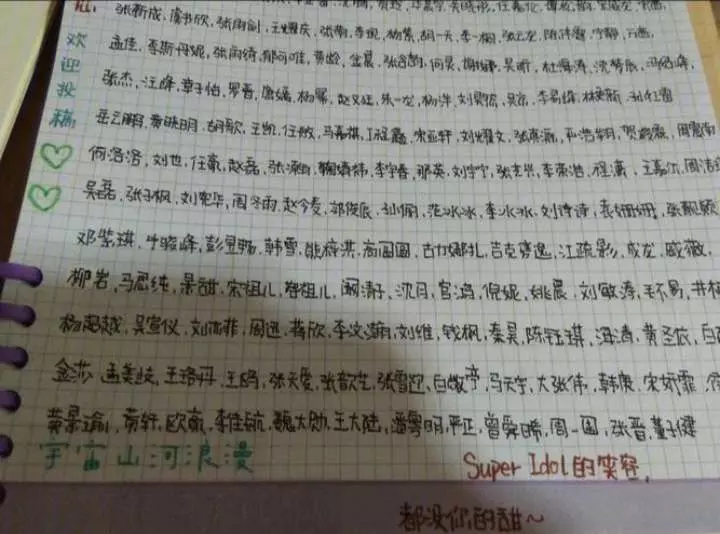 张新成，虞书欣，张雨剑，王耀庆，张翰，李现，杨紫，胡一天，李一桐，张云龙，陈伟霆，宁静，万茜，
欢迎投稿
孟佳，李斯丹妮，张雨绮，郁可唯，黄龄，金晨，张含韵，何炅，谢娜，吴昕，杜海涛，沈梦辰，冯绍峰，
张杰，汪峰，章子怡，罗晋，唐嫣，杨幂，赵又廷，朱一龙，杨洋，刘昊然，吴京，李易峰，林更新，孙红雷
岳云鹏，黄晓明，胡歌，王凯，任敏，马嘉祺，丁程鑫，宋亚轩，刘耀文，张真源，严浩翔，贺峻霖，周震南
何洛洛，刘也，任豪，赵磊，张颜齐，鞠婧祎，李宇春，那英，刘宇宁，张艺兴，李荣浩，程潇，王嘉尔，周洁琼
吴磊，张子枫，刘宪华，周冬雨，赵今麦，郭俊辰，孙俪，范冰冰，李冰冰，刘诗诗，袁姗姗，张靓颖
邓紫琪，牛骏峰，彭昱畅，韩雪，熊梓淇，高圆圆，古力娜扎，吉克隽逸，江疏影，成龙，戚薇，
柳岩，马思纯，景甜，宋祖儿，阚清子，沈月，宫鸿，倪妮，姚晨，刘敏涛，毛不易，井柏
杨超越，吴宣仪，刘亦菲，周迅，蒋欣，李汶翰，刘维，钱枫，秦昊，陈钰琪，海清，黄圣依，白
金莎，孟美岐，王珞丹，王鸥，张天爱，张歆艺，张雪迎，白敬亭，马天宇，大张伟，韩庚，宋妍霏，
黄景瑜，黄轩，欧豪，李佳航，魏大勋，王大陆，潘粤明，严正，曾舜晞，周一围，张晋，董子健
宇宙山河浪漫
Super Idol的笑容，
都没你的甜～